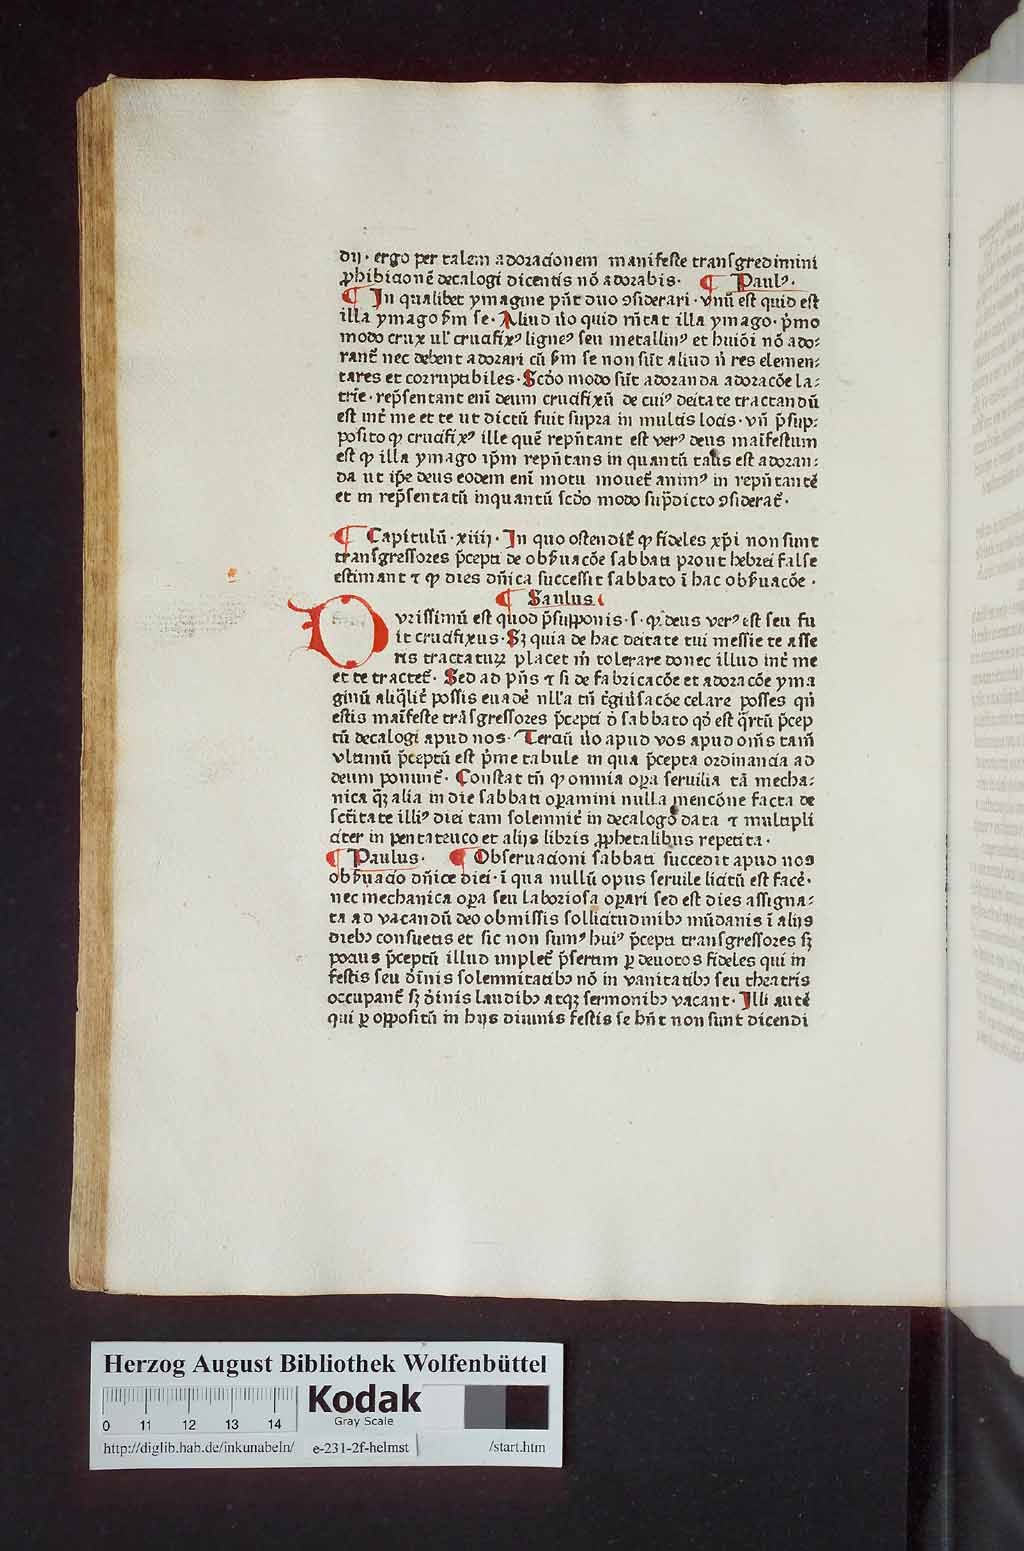 dij · ergo per talem adoracionem manifeste transgredimini
ꝓhibicionē decalogi dicentis nō adorabis · ¶ Paulꝰ ·
¶ In qualibet ymagine pn̄t duo ꝯsiderari · vnū est quid est
illa ymago s̄m se · Aliud v̄o quid rn̄tat illa ymago · p̄mo
modo crux ul' crucifixꝰ ligneꝰ seu metallinꝰ et huiōi nō ado⸗
rant̄ nec debent adorari cū s̄m se non sūt aliud n̄ res elemen⸗
tares et corruptibiles · Scd̄o modo sūt adoranda adoracōe la⸗
trie · rep̄sentant enī deum crucifixū de cuiꝰ deitate tractandū
est int̄ me et te ut dictū fuit supra in multis locis · vn̄ p̄sup⸗
posito ꝙ crucifixꝰ ille quē repn̄tant est verꝰ deus maīfestum
est ꝙ illa ymago ip̄m repn̄tans in quantū talis est adoran⸗
da ut ip̄e deus eodem enī motu mouet̄ animꝰ in repn̄tantē
et in rep̄sentatū inquantū scd̄o modo sup̄dicto ꝯsiderat̄ ·
¶ Capitulū · xiiij · In quo ostendit̄ ꝙ fideles xp̄i non sunt
transgressores p̄cepti de obs̄uacōe sabbati prout hebrei false
estimant ⁊ ꝙ dies dn̄ica successit sabbato ī hac obs̄uacōe ·
¶ Saulus
Dvrissimū est quod p̄supponis · s · ꝙ deus verꝰ est seu fu
it crucifixus · Sꝫ quia de hac deitate tui messie te asse
ris tractaturꝫ placet m̄ tolerare donec illud int̄ me
et te tractet̄ · Sed ad pn̄s ⁊ si de fabricacōe et adoracōe yma
ginū aliq̄lit̄ possis euadē nll'a tn̄ t̄giūsacōe celare posses qn̄
estis maīfeste trāsgressores p̄cepti d̄ sabbato qd̄ est q̄rtū p̄cep
tū decalogi apud nos · Terciū v̄o apud vos apud om̄s tam̄
vltimū p̄ceptū est p̄me tabule in qua p̄cepta ordinancia ad
deum ponunt̄ · Constat tn̄ ꝙ omnia oꝑa seruilia tā mecha⸗
nica q̄ꝫ alia in die sabbati oꝑamini nulla mencōne facta de
sc̄titate illiꝰ diei tam solemnit̄ in decalogo data ⁊ multipli
citer in pentateuco et alijs libris ꝓphetalibus repetita ·
¶ Paulus · ¶ Obseruacioni sabbati succedit apud nos
obs̄uacio dn̄ice diei · ī qua nullū opus seruile licitū est facē ·
nec mechanica oꝑa seu laboriosa oꝑari sed est dies assigna⸗
ta ad vacandū deo obmissis sollicitudinibꝫ mūdanis ī alijs
diebꝫ consuetis et sic non sumꝰ huiꝰ p̄cepti transgressores sꝫ
pocius p̄ceptū illud implet̄ p̄sertim ꝑ deuotos fideles qui in
festis seu d̄inis solemnitatibꝫ nō in vanitatibꝫ seu theatris
occupant̄ sꝫ d̄inis laudibꝫ atqꝫ sermonibꝫ vacant · Illi autē
qui ꝑ oppositū in hijs diuinis festis se hn̄t non sunt dicendi
Herzog August Bibliothek Wolfenbüttel
0 11 12 13 14
Kodak
Gray Scale
http://diglib.hab.de/inkunabeln/ e-231-2f-helmst /start.htm